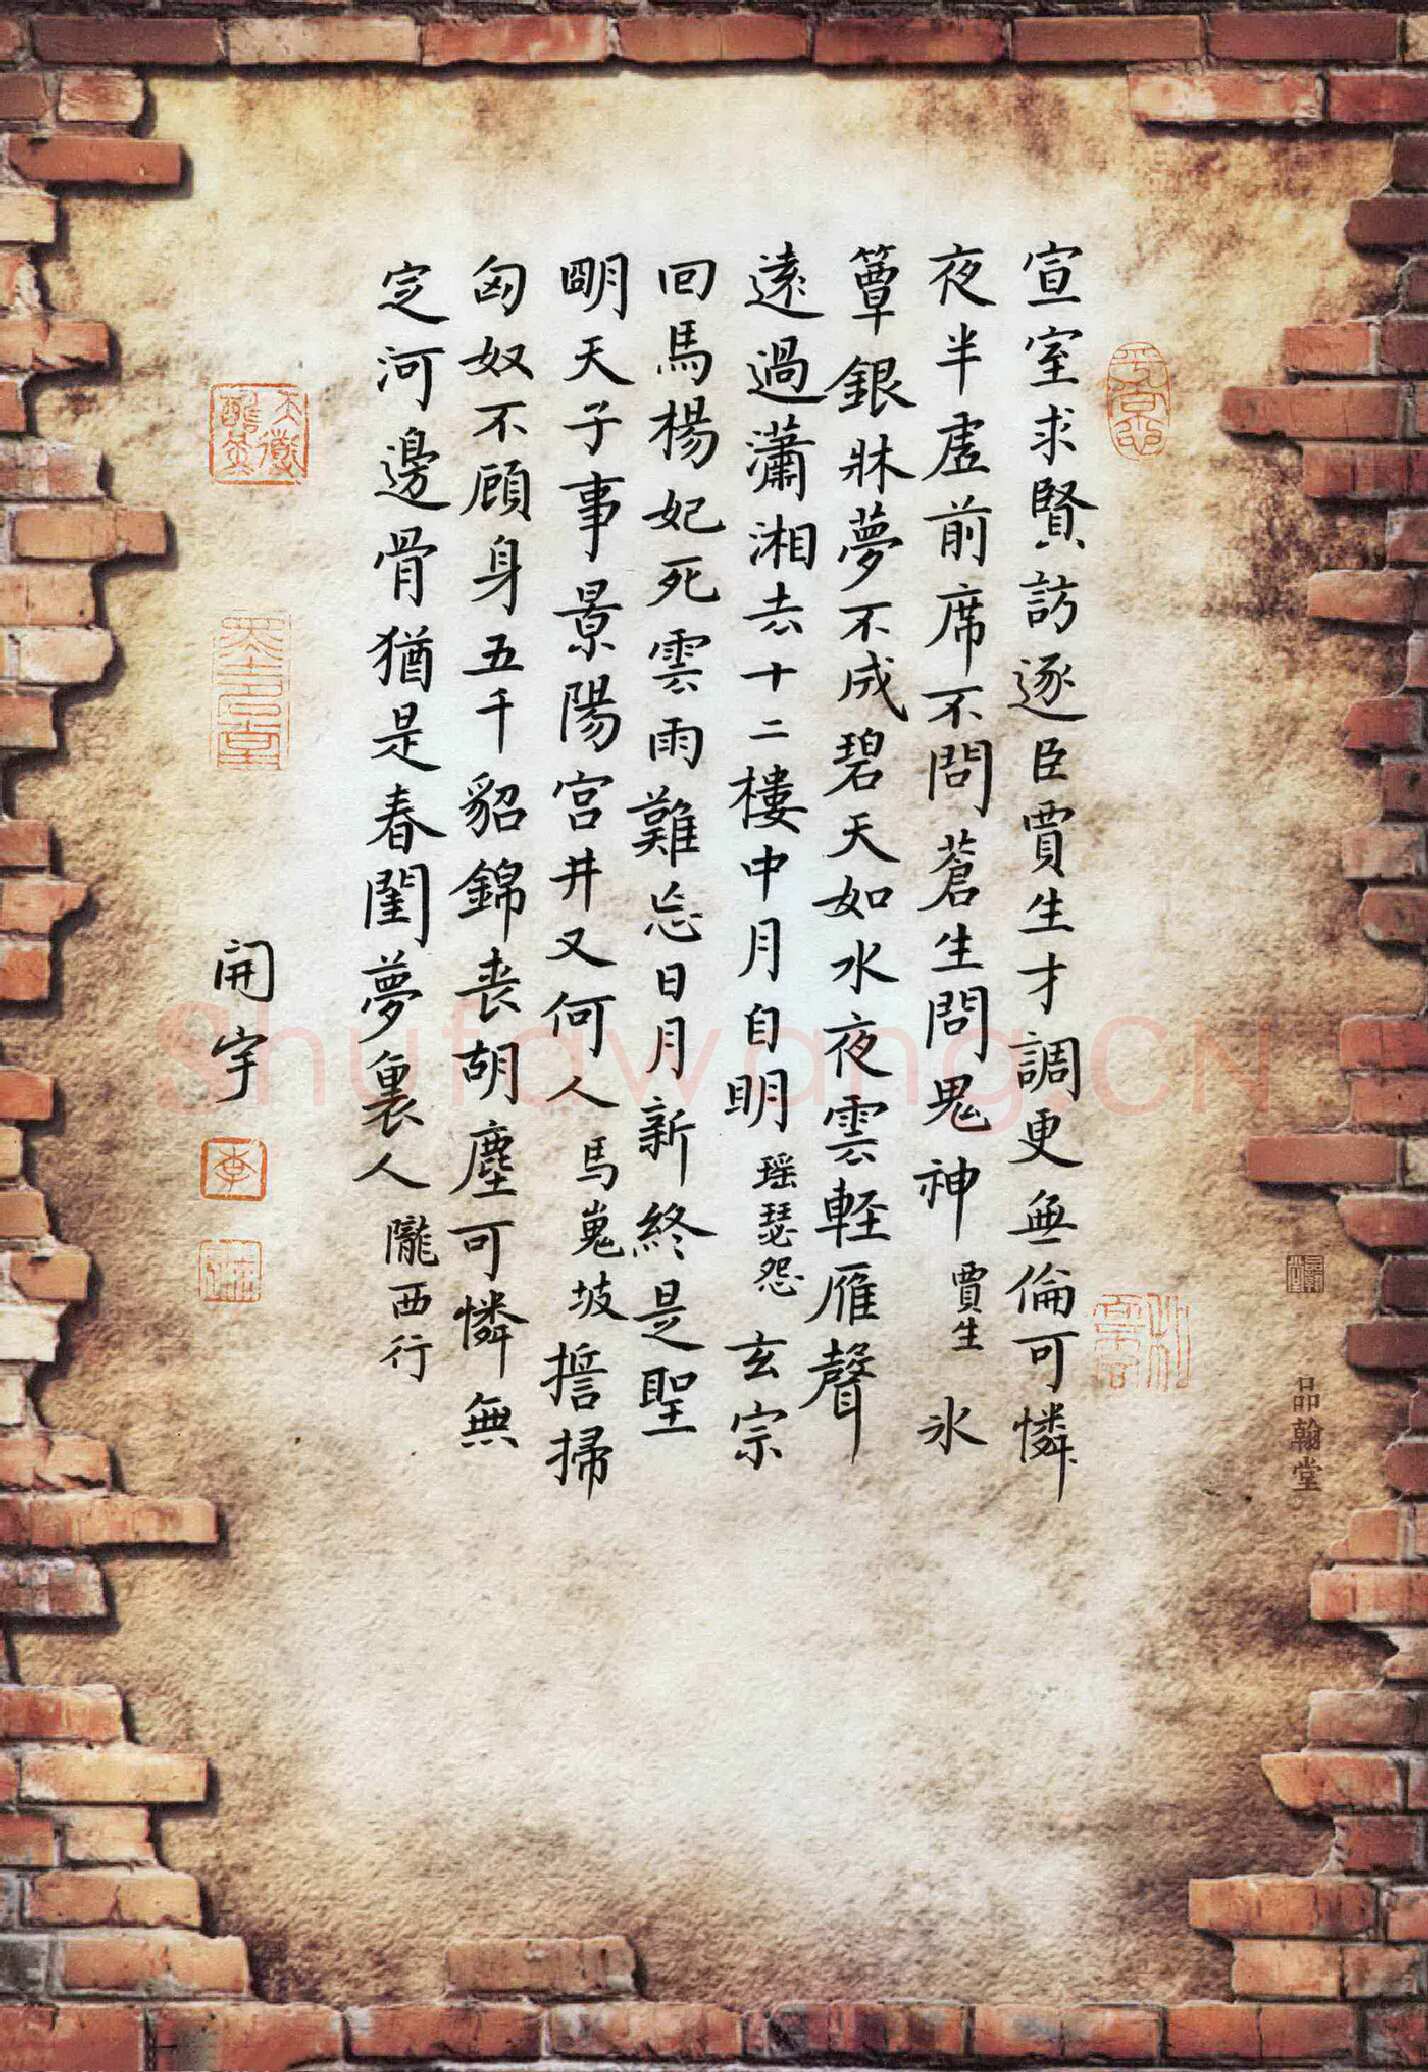 宣室求賢訪逐臣賈生才調更無倫可憐
夜半虛前席不問蒼生問鬼神 賈生 氷
簟銀牀夢不成碧天如水夜雲軽雁聲
遠過瀟湘去十二樓中月自明 瑶瑟怨 玄宗
回馬楊妃死雲雨難忘日月新終是聖
明天子事景陽宮井又何人 馬嵬坡 誓掃
匈奴不顧身五千貂錦丧胡塵可憐無
定河邊骨猶是春閨夢裏人 隴西行
開宇
李
品翰堂
Shufawang.CN